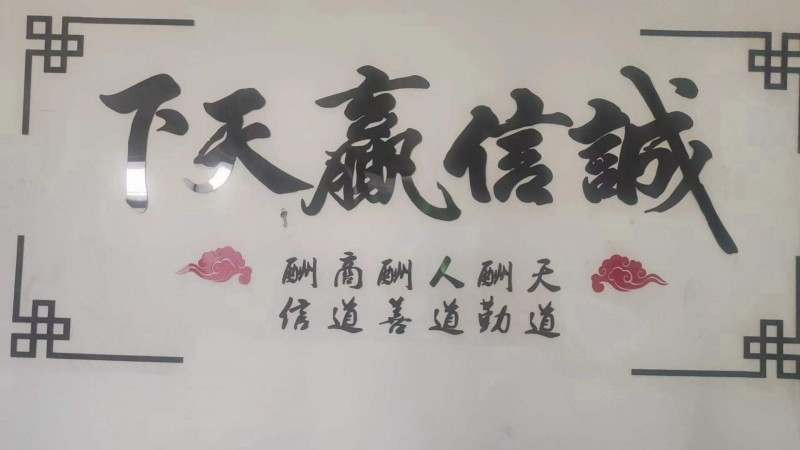 誠信赢天下
天道酬勤
人道酬善
商道酬信